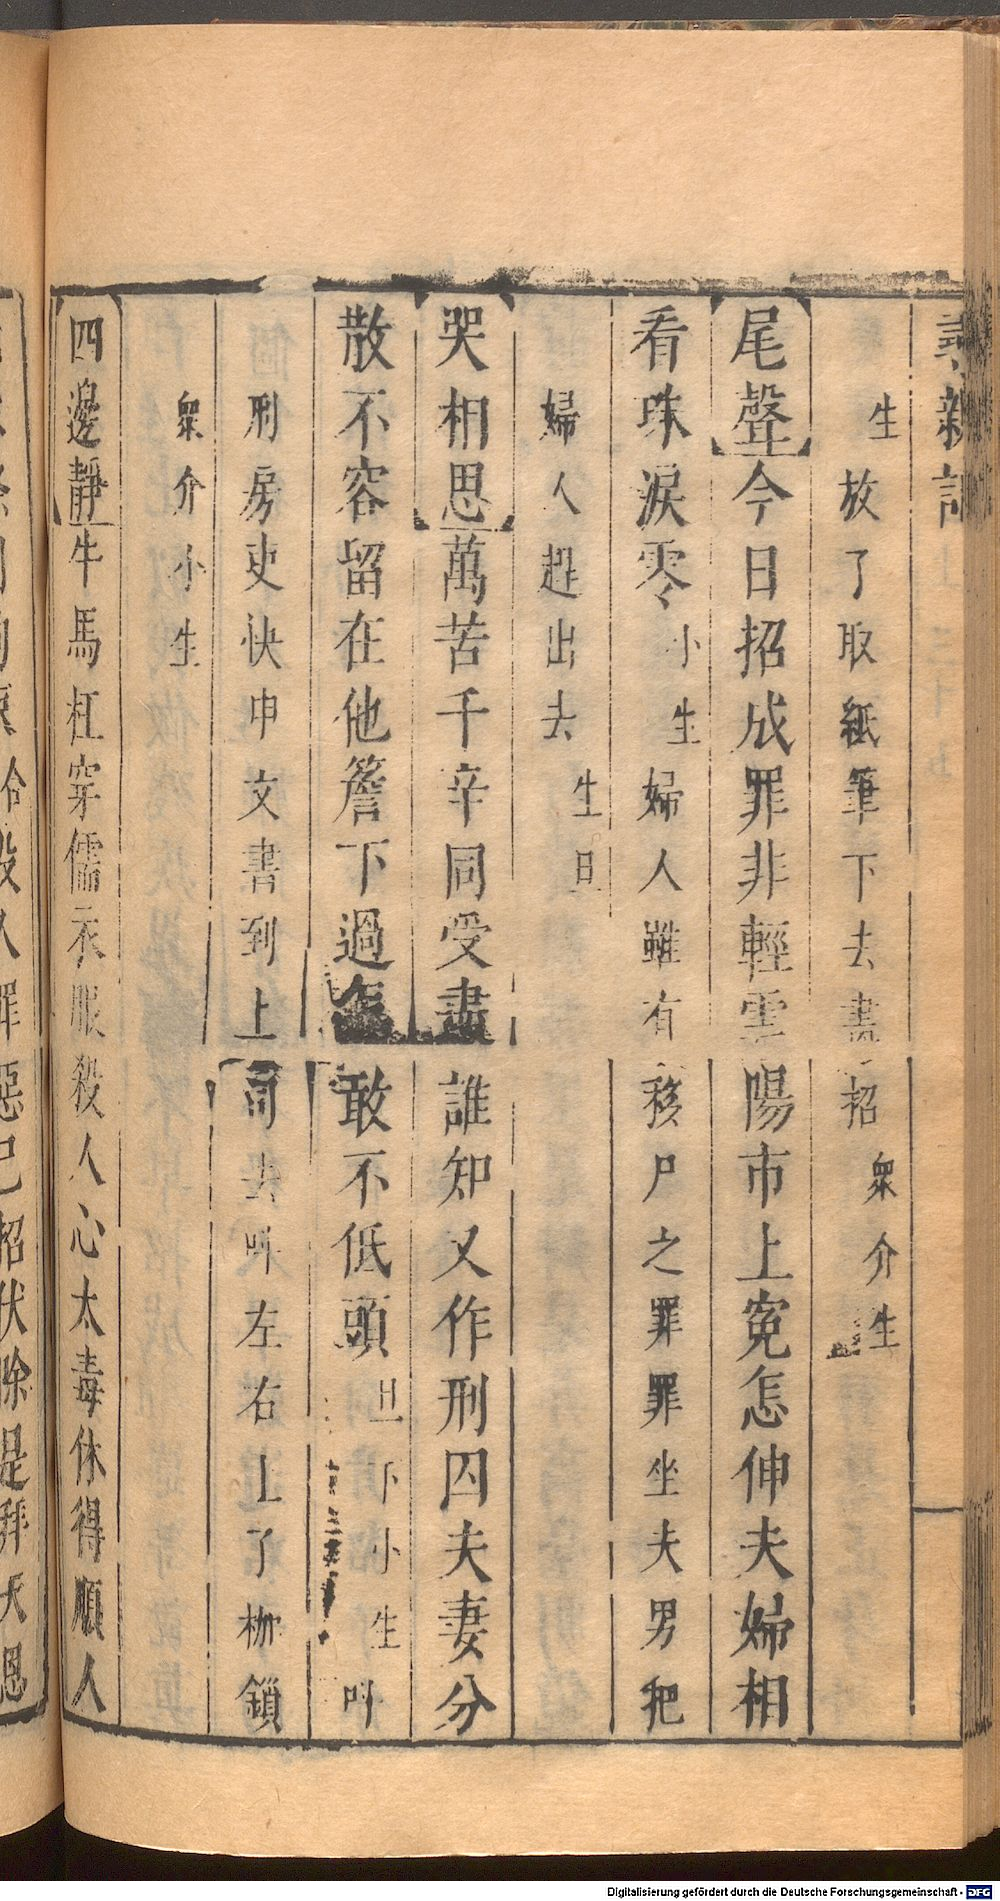 生放了取紙筆下去畫招衆介生
尾聲今日招成罪非輕雲陽市上寃怎伸夫婦相
看珠淚零小生婦人雖有移尸之罪罪坐夫男把
婦人趕出去生旦
哭相思萬苦千辛同受盡誰知又作刑囚夫妻分
散不容留在他簷下過怎敢不低頭旦下小生叫
刑房吏快申文書到上司去呌左右上了枷鎖
衆介小生
四邊靜牛馬杠穿儒衣服殺人心太毒休得順人
罪惡已招伏除是拜天恩
Digitalisierung gefördert durch die Deutsche Forschungsgemeinschaft - DFG